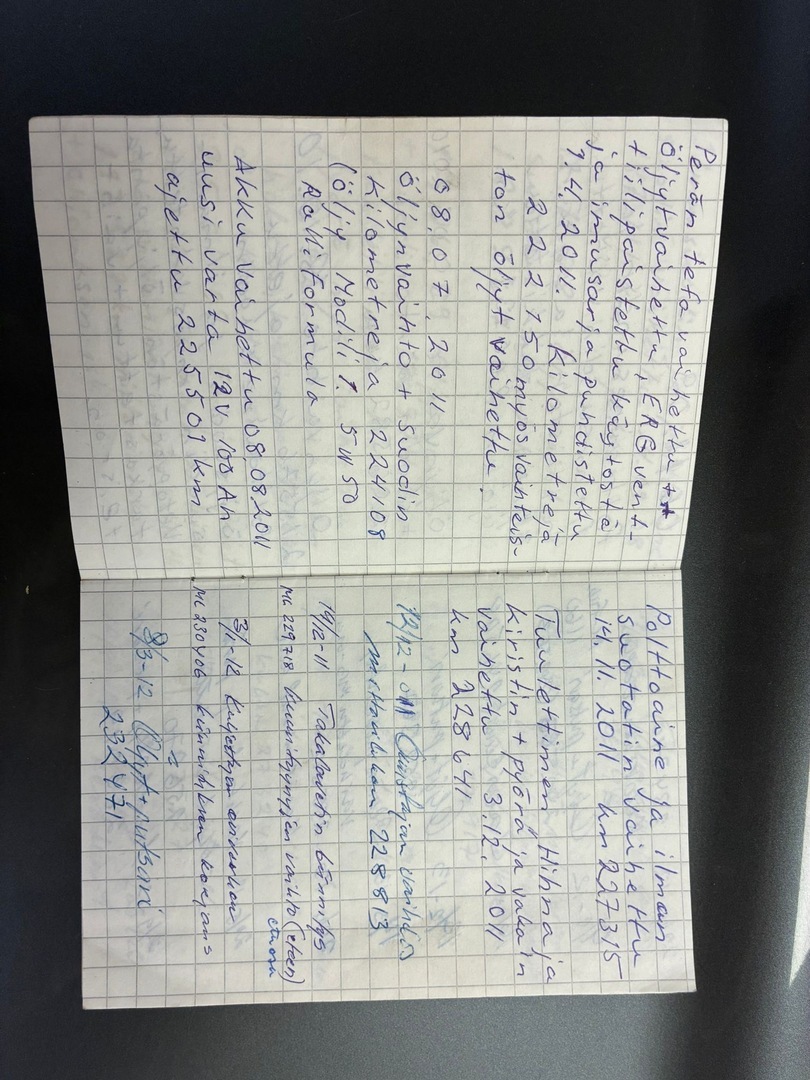 Perän tefa vaihettu +
öljyt vaihettu, ERG vent-
tiili paistettu käytöstä
ja imusarja puhdistettu
7.4.2011. Kilometrejä
222150 myös vaihteis-
ton öljyt vaihettu.
08.07.2011
öljyn vaihto + suodin
Kilometrejä 224108
(öljy Modili 1. 5W50
Ralli Formula
AKKu vaihettu 08.08.2011
uusi varta 12V 100 Ah
ajettu 225501 km
Polttoaine ja ilman
suotatin vaihettu
14.11.2011 km 227315
Tuulettimen Hihna ja
kiristin + pyörä ja vaka in
vaihettu 3.12.2011
km 228641
12/12-011 vaihdis
228813
19/12-11 Takalaakerin
ML 229718 vaihto (eteen)
3/1-12
ML 230406 korjaus
8/3-12 Öljyt +
232471